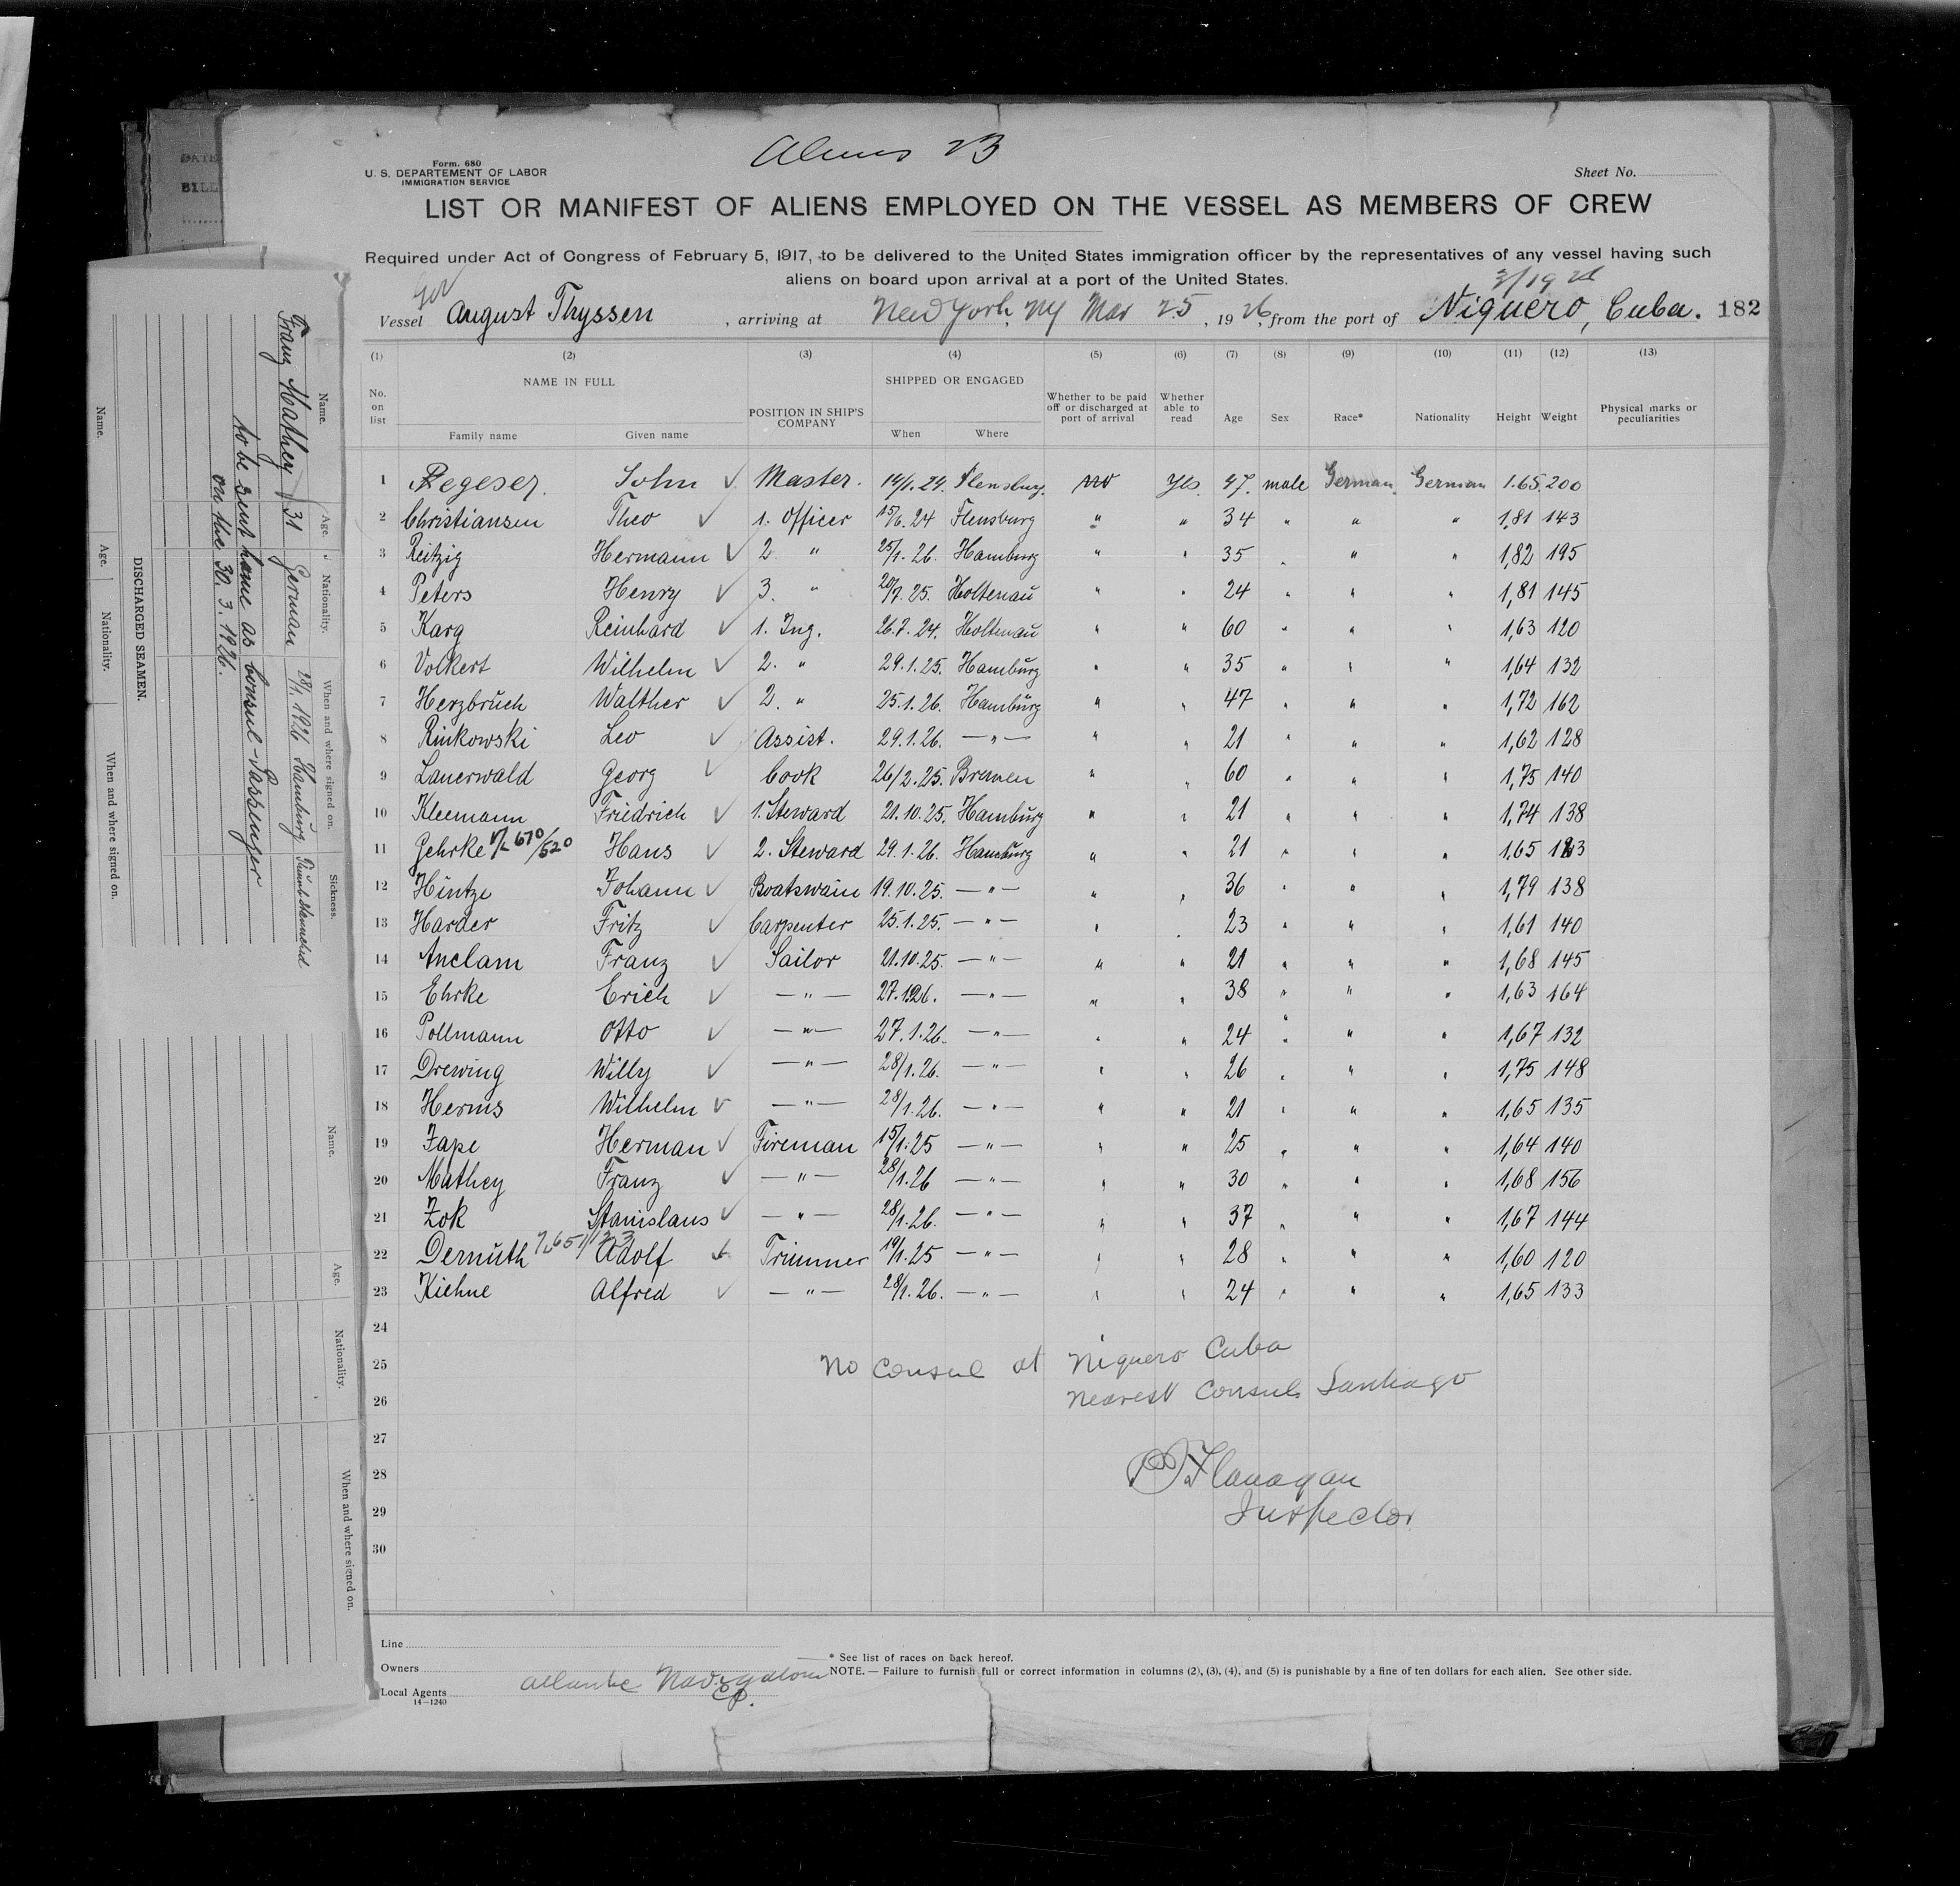 Aliens 23
Form. 680
U. S. DEPARTEMENT OF LABOR
IMMIGRATION SERVICE
Sheet No.
LIST OR MANIFEST OF ALIENS EMPLOYED ON THE VESSEL AS MEMBERS OF CREW
Required under Act of Congress of February 5, 1917, to be delivered to the United States immigration officer by the representatives of any vessel having such
aliens on board upon arrival at a port of the United States.
3/19 26
Vessel August Thyssen, arriving at New York, NY Mar 25, 1926, from the port of Niquero, Cuba. 182
(1) (2) (3) (4) (5) (6) (7) (8) (9) (10) (11) (12) (13)
No. on list NAME IN FULL Family name Given name POSITION IN SHIP'S COMPANY SHIPPED OR ENGAGED When Where Whether to be paid off or discharged at port of arrival Whether able to read Age Sex Race* Nationality Height Weight Physical marks or peculiarities
1 Regeser. John Master. 14/1.24. Flensburg. no Yes 47. male German German 1.65. 200
2 Christiansen Theo 1. Officer 15/6.24 Flensburg " " 34 " " " 1,81 143
3 Reitzig Hermann 2. " 25/1.26. Hamburg " " 35 " " " 1,82 195
4 Peters Henry 3. " 20/7.25. Holtenau " " 24 " " " 1,81 145
5 Karg Reinhard 1. Ing. 26.7.24. Holtenau " " 60 " " " 1,63 120
6 Volkert Wilhelm 2. " 29.1.25. Hamburg " " 35 " " " 1,64 132
7 Herzbruch Walther 2. " 25.1.26. Hamburg " " 47 " " " 1,72 162
8 Rinkowski Leo Assist. 29.1.26. — " — " " 21 " " " 1,62 128
9 Lauerwald Georg Cook 26/2.25. Bremen " " 60 " " " 1,75 140
10 Kleemann Friedrich 1. Steward 21.10.25. Hamburg " " 21 " " " 1,74 138
11 Gehrke 670/520 Hans 2. Steward 29.1.26. Hamburg " " 21 " " " 1,65 123
12 Hintze Johann Boatswain 19.10.25. — " — " " 36 " " " 1,79 138
13 Harder Fritz Carpenter 25.1.25. — " — " " 23 " " " 1,61 140
14 Anclam Franz Sailor 21.10.25. — " — " " 21 " " " 1,68 145
15 Ehrke Erich — " — 27.1.26. — " — " " 38 " " " 1,63 164
16 Pollmann Otto — " — 27.1.26. — " — " " 24 " " " 1,67 132
17 Drewing Willy — " — 28/1.26. — " — " " 26 " " " 1,75 148
18 Herms Wilhelm — " — 28/1.26. — " — " " 21 " " " 1,65 135
19 Zape Herman Fireman 15/1.25 — " — " " 25 " " " 1,64 140
20 Mathey Franz — " — 28/1.26 — " — " " 30 " " " 1,68 156
21 Zok Stanislaus — " — 28/1.26. — " — " " 37 " " " 1,67 144
22 Demuth Adolf Trimmer 19/1.25 — " — " " 28 " " " 1,60 120
23 Kiehne Alfred — " — 28/1.26. — " — " " 24 " " " 1,65 133
24
25 No Consul at Niquero Cuba
26 nearest Consul Santiago
27
28 Flanagan
29 Inspector
30
Line
Owners
Local Agents Atlantic Navigation Co.
14—1240
* See list of races on back hereof.
NOTE. — Failure to furnish full or correct information in columns (2), (3), (4), and (5) is punishable by a fine of ten dollars for each alien. See other side.
Name. Age. Nationality. When and where signed on. Sickness.
Franz Mathey 31 German 28/1. 1926 Hamburg
to be sent home as Consul-Passenger
on the 30. 3. 1926.
DISCHARGED SEAMEN.
Name. Age. Nationality. When and where signed on.
Name. Age. Nationality. When and where signed on.
DATE
BILL